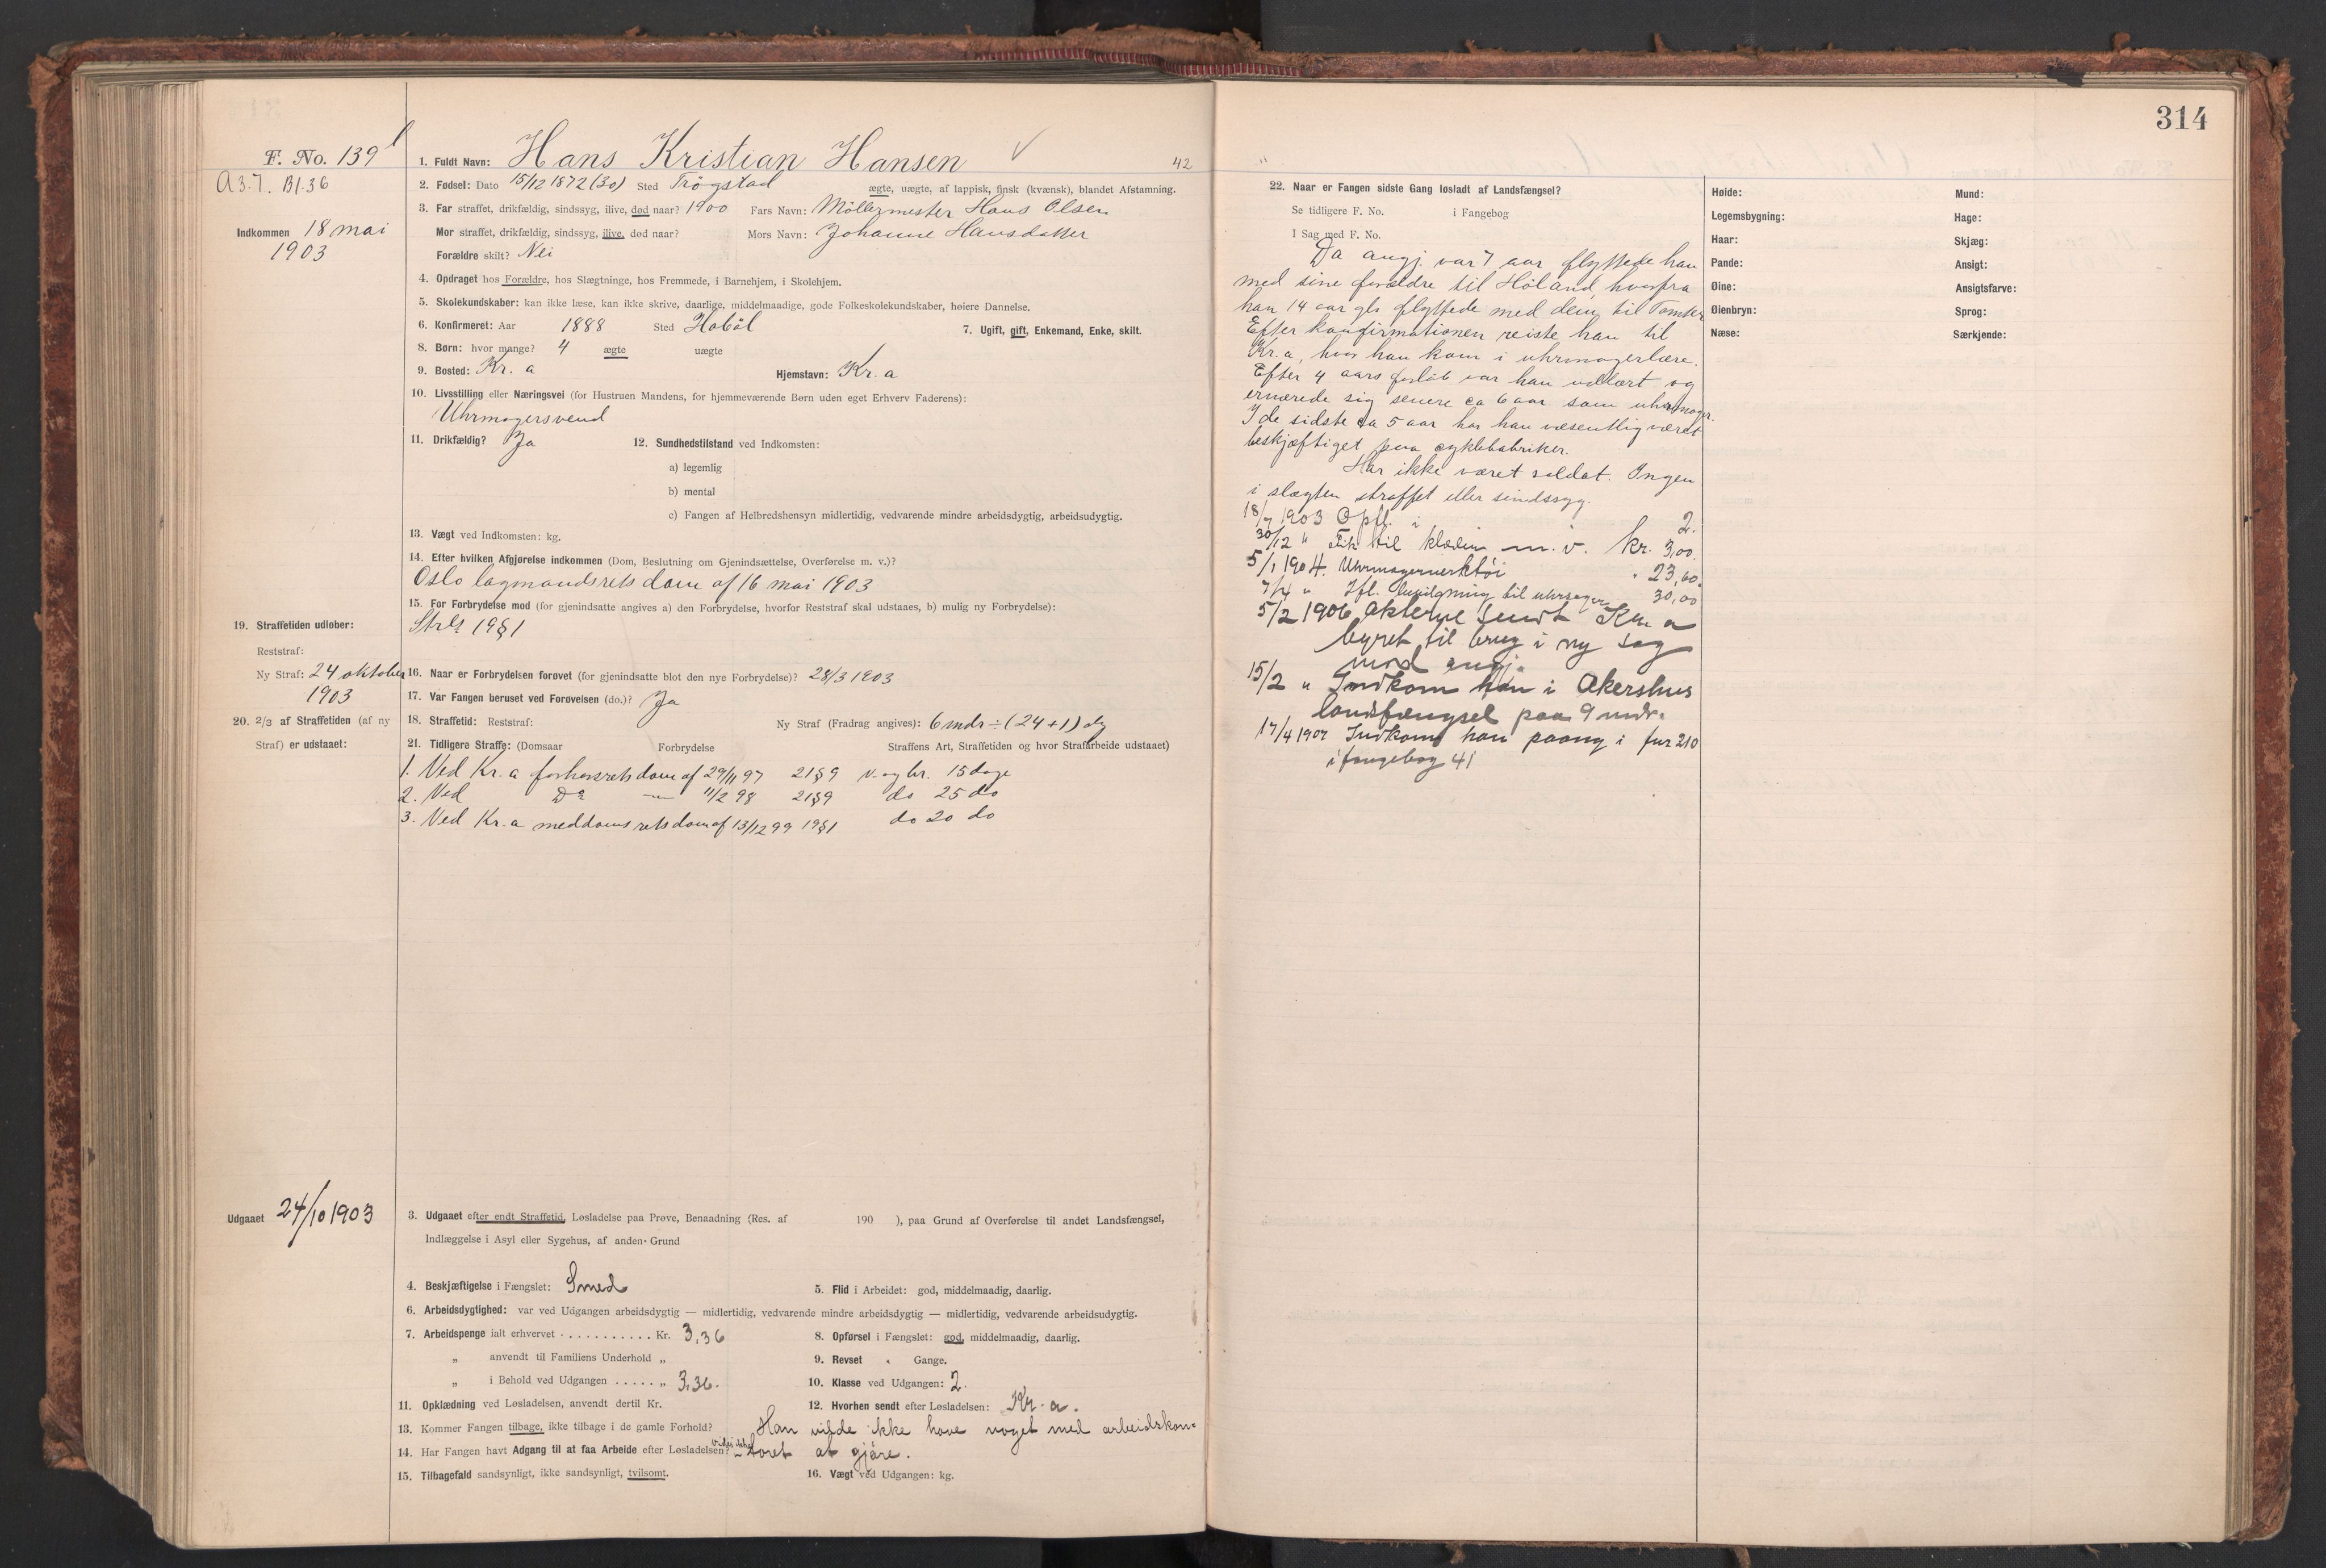 314
F. No. 139
A 3.7. Bl. 36
Indkommen 18 mai
1903
1. Fuldt Navn: Hans Kristian Hansen
42
2. Fødsel: Dato 15/12 1872 (30) Sted Trögstad ægte, uægte, af lappisk, finsk (kvænsk), blandet Afstamning.
3. Far straffet, drikfældig, sindssyg, ilive, død naar? 1900 Fars Navn: Möllermester Hans Olsen
Mor straffet, drikfældig, sindssyg, ilive, død naar? Mors Navn: Johanne Hansdatter
Forældre skilt? Nei
4. Opdraget hos Forældre, hos Slægtninge, hos Fremmede, i Barnehjem, i Skolehjem.
5. Skolekundskaber: kan ikke læse, kan ikke skrive, daarlige, middelmaadige, gode Folkeskolekundskaber, høiere Dannelse.
6. Konfirmeret: Aar 1888 Sted Haböl 7. Ugift, gift, Enkemand, Enke, skilt.
8. Børn: hvor mange? 4 ægte uægte
9. Bosted: Kr. a Hjemstavn: Kr. a
10. Livsstilling eller Næringsvei (for Hustruen Mandens, for hjemmeværende Børn uden eget Erhverv Faderens):
Uhrmagersvend
11. Drikfældig? Ja 12. Sundhedstilstand ved Indkomsten:
a) legemlig
b) mental
c) Fangen af Helbredshensyn midlertidig, vedvarende mindre arbeidsdygtig, arbeidsudygtig.
13. Vægt ved Indkomsten: kg.
14. Efter hvilken Afgjørelse indkommen (Dom, Beslutning om Gjenindsættelse, Overførelse m. v.)?
Oslo lagmandsrets dom af 16 mai 1903
15. For Forbrydelse mod (for gjenindsatte angives a) den Forbrydelse, hvorfor Reststraf skal udstaaes, b) mulig ny Forbrydelse):
Strl. 19 § 1
19. Straffetiden udløber:
Reststraf:
Ny Straf: 24 oktober
1903
16. Naar er Forbrydelsen forøvet (for gjenindsatte blot den nye Forbrydelse)? 28/3 1903
17. Var Fangen beruset ved Forøvelsen (do.)? Ja
20. 2/3 af Straffetiden (af ny
Straf) er udstaaet:
18. Straffetid: Reststraf: Ny Straf (Fradrag angives): 6 mdr ÷ (24 + 1) dg
21. Tidligere Straffe: (Domsaar Forbrydelse Straffens Art, Straffetiden og hvor Strafarbeide udstaaet)
1. Ved Kr. a forhørsrets dom af 29/11 97 21 § 9 v. og br. 15 dage
2. Ved Do — 11/2 98 21 § 9 do 25 do
3. Ved Kr. a meddomsretsdom af 13/12 99 19 § 1 do 20 do
Udgaaet 24/10 1903
3. Udgaaet efter endt Straffetid, Løsladelse paa Prøve, Benaadning (Res. af 190 ), paa Grund af Overførelse til andet Landsfængsel,
Indlæggelse i Asyl eller Sygehus, af anden Grund
4. Beskjæftigelse i Fængslet: Smed 5. Flid i Arbeidet: god, middelmaadig, daarlig.
6. Arbeidsdygtighed: var ved Udgangen arbeidsdygtig — midlertidig, vedvarende mindre arbeidsdygtig — midlertidig, vedvarende arbeidsudygtig.
7. Arbeidspenge ialt erhvervet . . . . . . . . . . . Kr. 3,36 8. Opførsel i Fængslet: god, middelmaadig, daarlig.
„ anvendt til Familiens Underhold „ 9. Revset Gange.
„ i Behold ved Udgangen . . . . . „ 3,36. 10. Klasse ved Udgangen: 2.
11. Opklædning ved Løsladelsen, anvendt dertil Kr. 12. Hvorhen sendt efter Løsladelsen: Kr. a.
13. Kommer Fangen tilbage, ikke tilbage i de gamle Forhold? Han vilde ikke have noget med arbeidskon-
14. Har Fangen havt Adgang til at faa Arbeide efter Løsladelsen? vides ikke toret at gjöre.
15. Tilbagefald sandsynligt, ikke sandsynligt, tvilsomt. 16. Vægt ved Udgangen: kg.
22. Naar er Fangen sidste Gang løsladt af Landsfængsel?
Se tidligere F. No. i Fangebog
I Sag med F. No.
Da angj. var 7 aar flyttede han
med sine forældre til Höland, hvorfra
han 14 aar gl. flyttede med dem til Tomter
Efter konfirmationen reiste han til
Kr. a, hvor han kom i uhrmagerlære.
Efter 4 aars forlöb var han udlært og
ernærede sig senere ca 6 aar som uhrmager.
I de sidste ca 5 aar har han væsentlig været
beskjæftiget paa cyklefabriker.
Har ikke været soldat. Ingen
i slægten straffet eller sindssyg.
18/7 1903 Opfl. i 2.
30/12 " Fik til klæder m. v. kr. 3,00.
5/1 1904. Uhrmagerverktöi " 23,60.
7/4 " Ifl. til uhrsager 30,00
5/2 1906 Akterne sendt Kr. a
byret til brug i ny sag
mod angj.
15/2 " Indkom han i Akershus
landsfængsel paa 9 mdr.
17/4 1907 Indkom han paany i fnr 210
i fangebog 41
Høide: Mund:
Legemsbygning: Hage:
Haar: Skjæg:
Pande: Ansigt:
Øine: Ansigtsfarve:
Øienbryn: Sprog:
Næse: Særkjende: